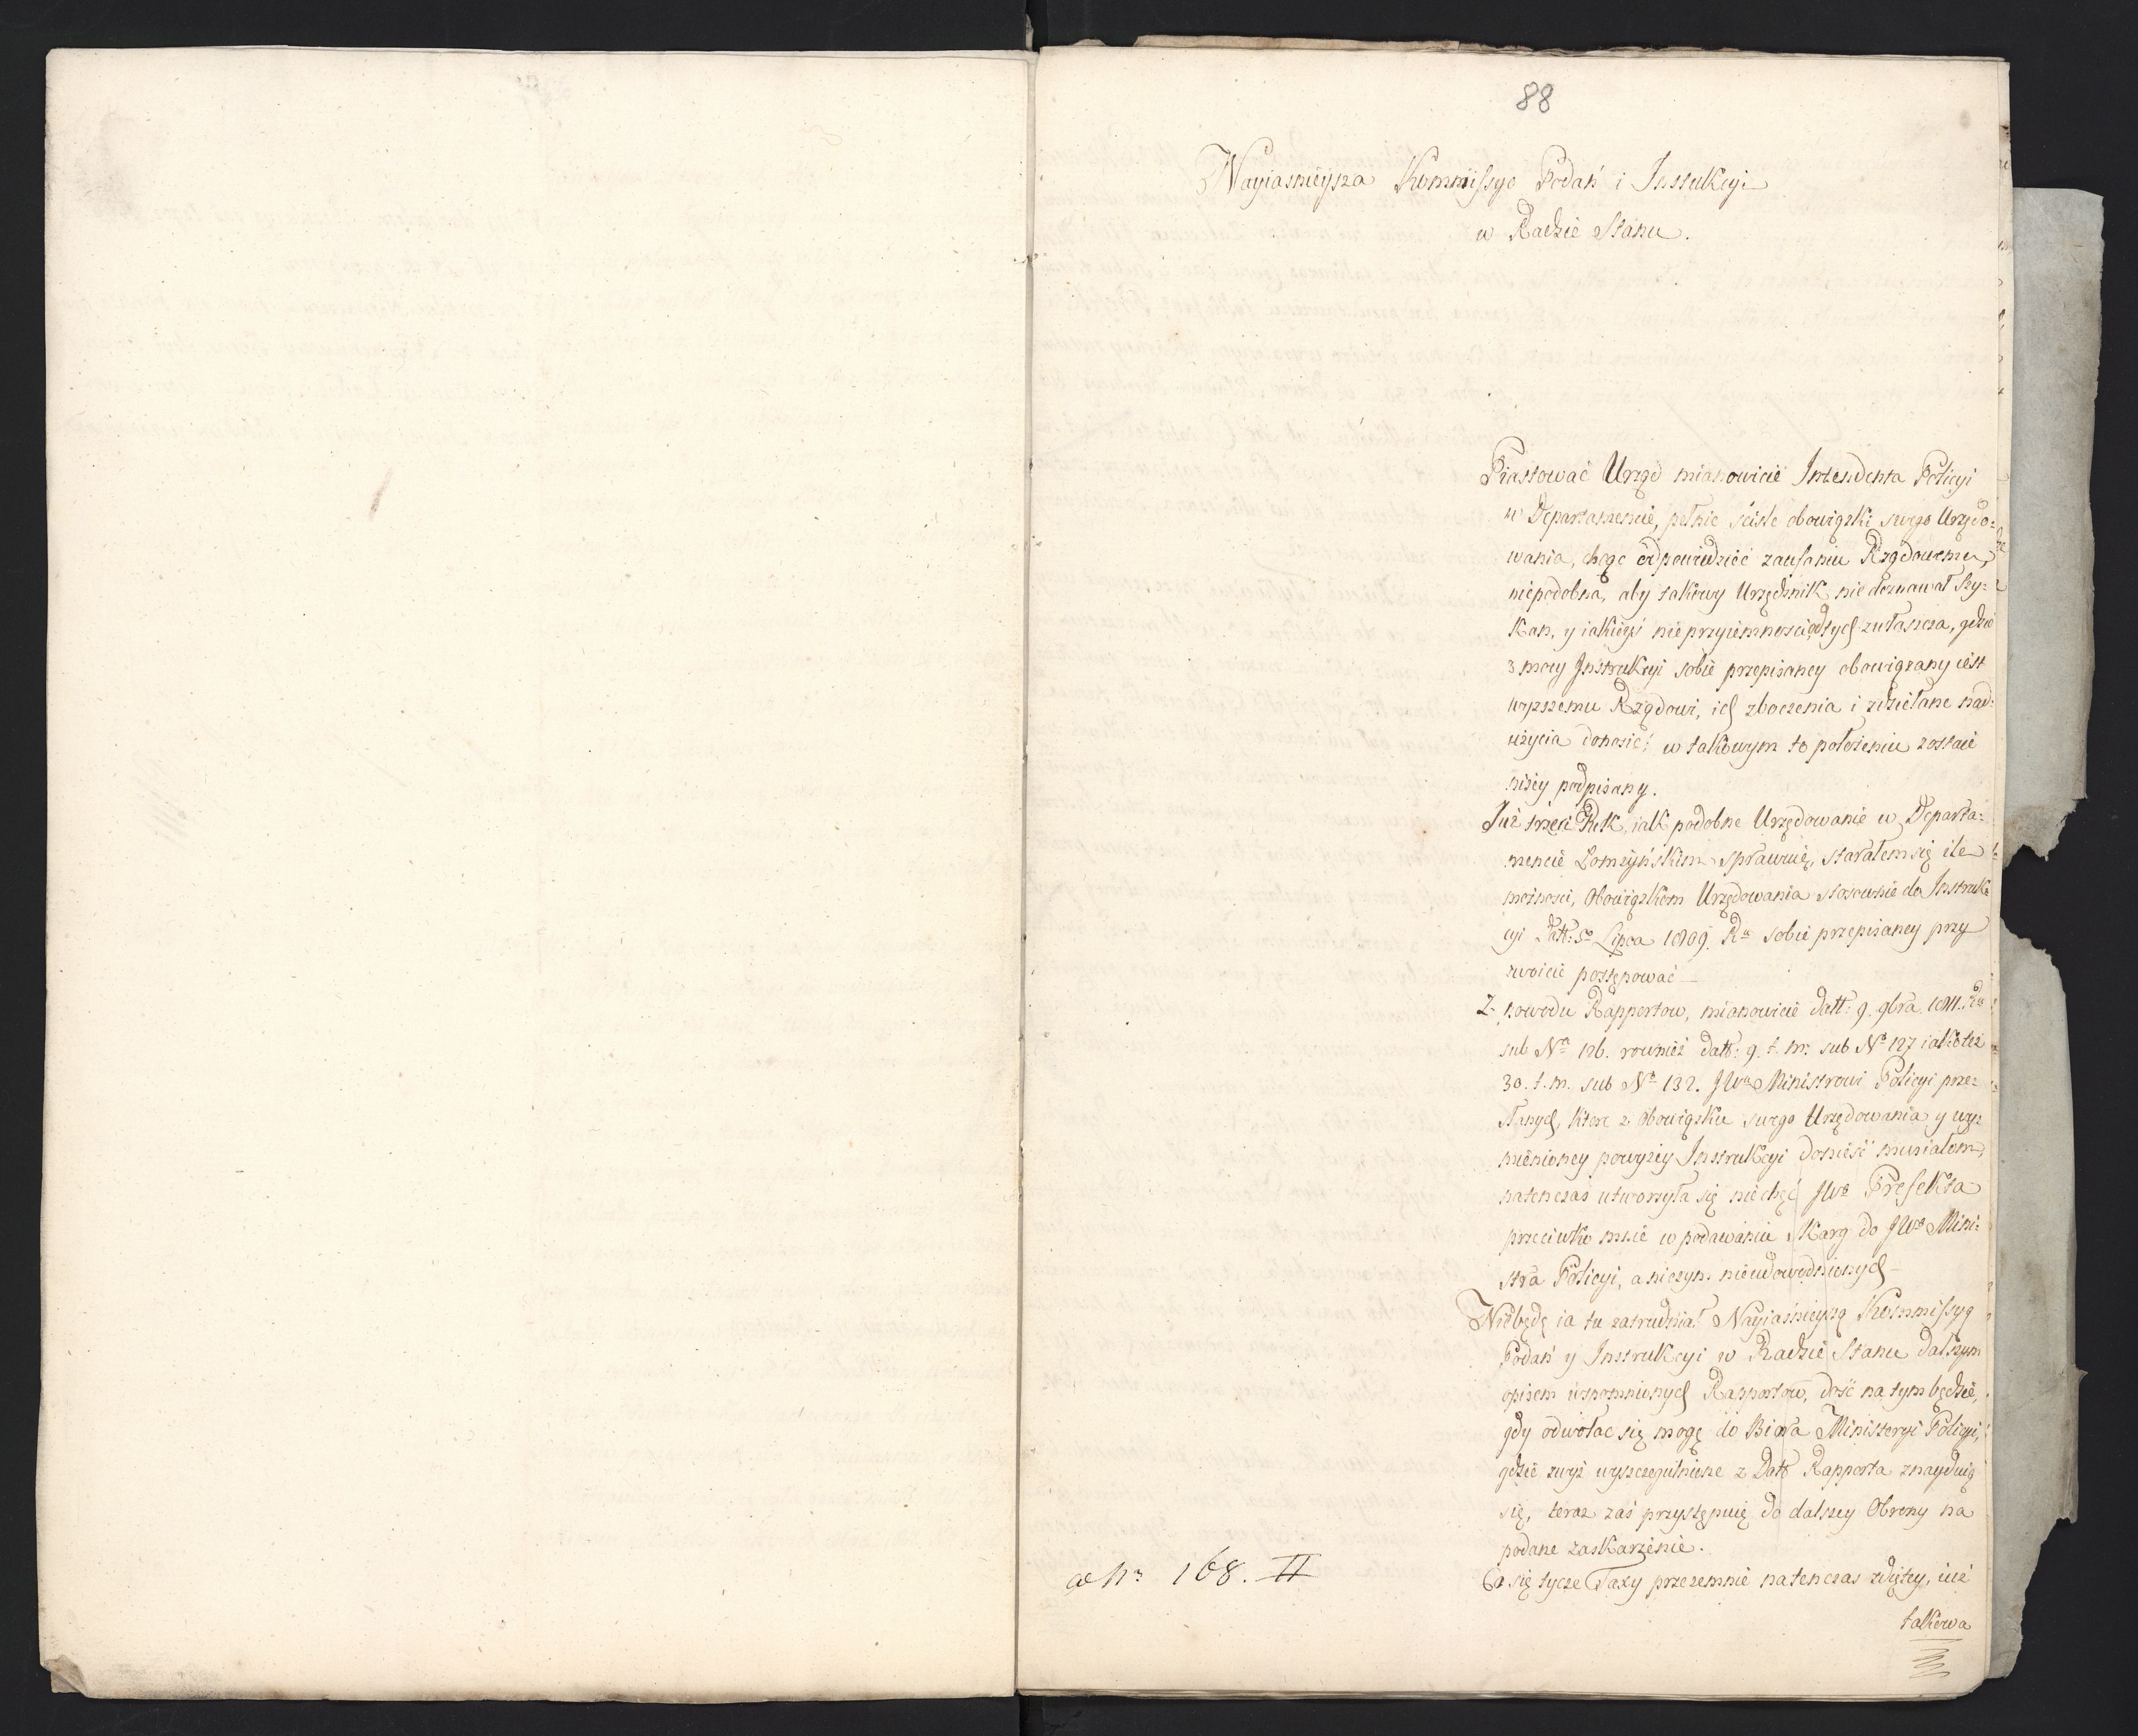 88
Nayiasnieysza Kommissyo Podań i Instrukcyi
w Radzie Stanu.
Piastować Urząd mianowicie Intendenta Policyi
w Departamencie, pełnić ściśle obowiązki swego Urzędo=
wania, chcąc odpowiedzieć zaufaniu Rządowemu,
niepodobna, aby takowy Urzędnik nie doznawał Szy=
kan, y iakieyś nieprzyiemności od tych zwłaszcza, gdzie
z mocy Instrukcyi sobie przepisaney obowiązany iest
wyższemu Rządowi, ich zboczenia i zdziełane nad=
użycia donosić; w takowym to położeniu zostaie
niżey podpisany.
Już trzeci Rok, iak podobne Urzędowanie w Departa=
mencie Łomżyńskim sprawuię, starałem się ile
możności, Obowiązkom Urzędowania stosownie do Instruk=
cyi Datt: 5º Lipca 1809. Rª sobie przepisaney przy
zwoicie postępować —
Z powodu Rapportow, mianowicie Datt: 9. 9bra 1811. Rª
sub Nº 126. rownież datt: 9. t. m. sub Nº 127 iakoteż
30. t. m. sub Nº 132. JWº Ministrowi Policyi prze=
słanych, ktore z Obowiązku swego Urzędowania y wy=
mienioney powyżey Instrukcyi donieść musiałem,
natenczas utworzyła się niechęć JWº Prefekta
przeciwko mnie w podawaniu Skarg do JWº Mini=
stra Policyi, a niczym nieudowodnionych —
Niebędę ia tu zatrudniał Nayiaśnieyszą Kommissyą
Podań y Instrukcyi w Radzie Stanu dalszym
opisem wspomnionych Rapportow, dość na tym będzie,
gdy odwołac się mogę do Biora Ministeryi Policyi,
gdzie zwyż wyszczegulnione z Datt Rapporta znayduią
się, teraz zaś przystępuię do dalszey Obrony na
podane zaskarżenie.
Co się tycze Taxy przezemnie natenczas zdiętey, iuż
takowa
168. II